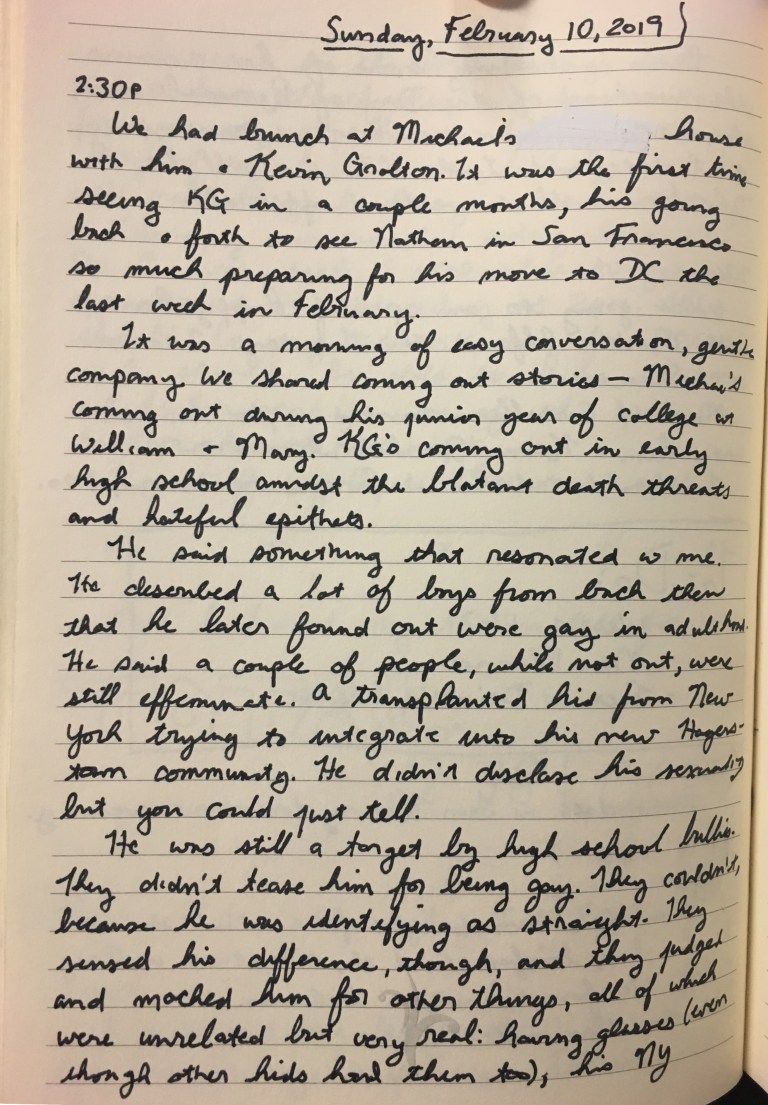 Sunday, February 10, 2019
2:30p
We had brunch at Michael's house
with him & Kevin Grolton. It was the first time
seeing KG in a couple months, his going
back & forth to see Nathan in San Francisco
so much preparing for his move to DC the
last week in February.
It was a morning of easy conversation, gentle
company. We shared coming out stories — Michael's
coming out during his junior year of college at
William & Mary. KG's coming out in early
high school amidst the blatant death threats
and hateful epithets.
He said something that resonated w me.
He described a lot of boys from back then
that he later found out were gay in adulthood.
He said a couple of people, while not out, were
still effeminate. A transplanted kid from New
York trying to integrate into his new Hagers-
town community. He didn't disclose his sexuality
but you could just tell.
He was still a target by high school bullies.
They didn't tease him for being gay. They couldn't,
because he was identifying as straight. They
sensed his difference, though, and they judged
and mocked him for other things, all of which
were unrelated but very real: having glasses (even
though other kids had them too), his NY